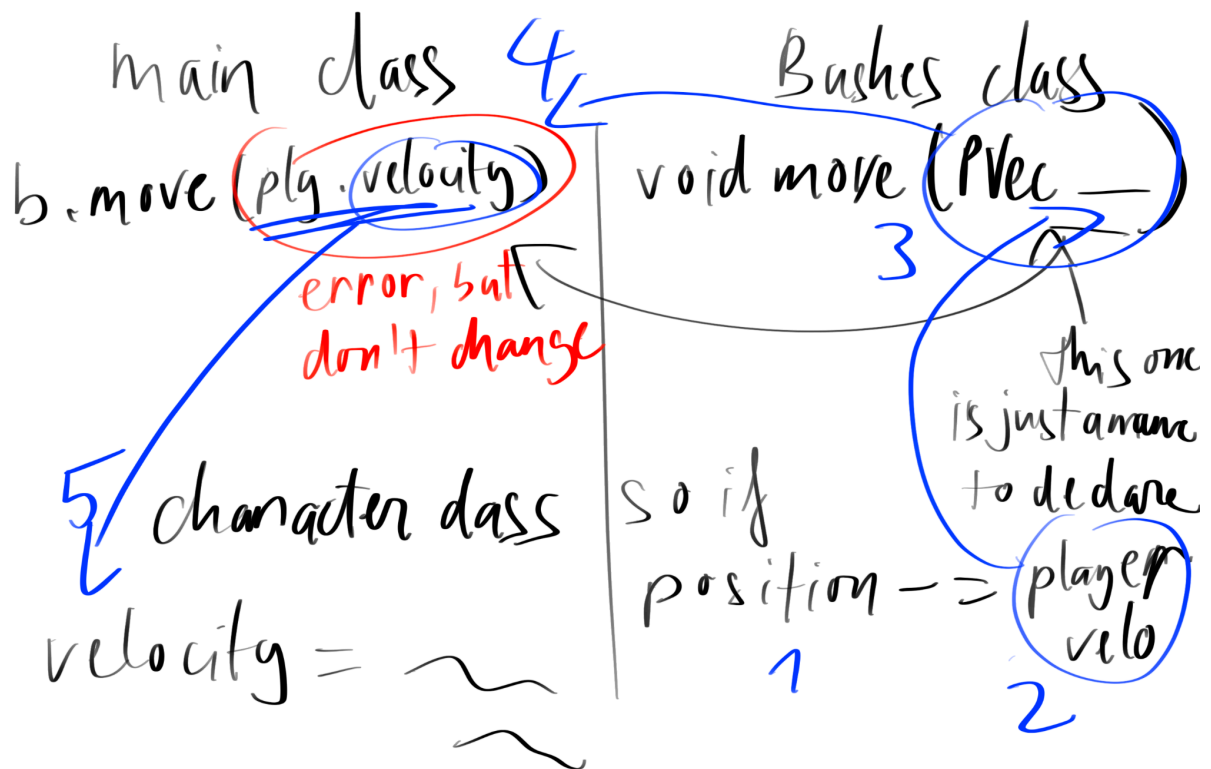 main class
4
b.move(plg.velocity)
error, but
don't change
5
character class
velocity =
Bushes class
void move (PVec __)
3
this one
is just a name
to declare
so if
position -= player
velo
1
2